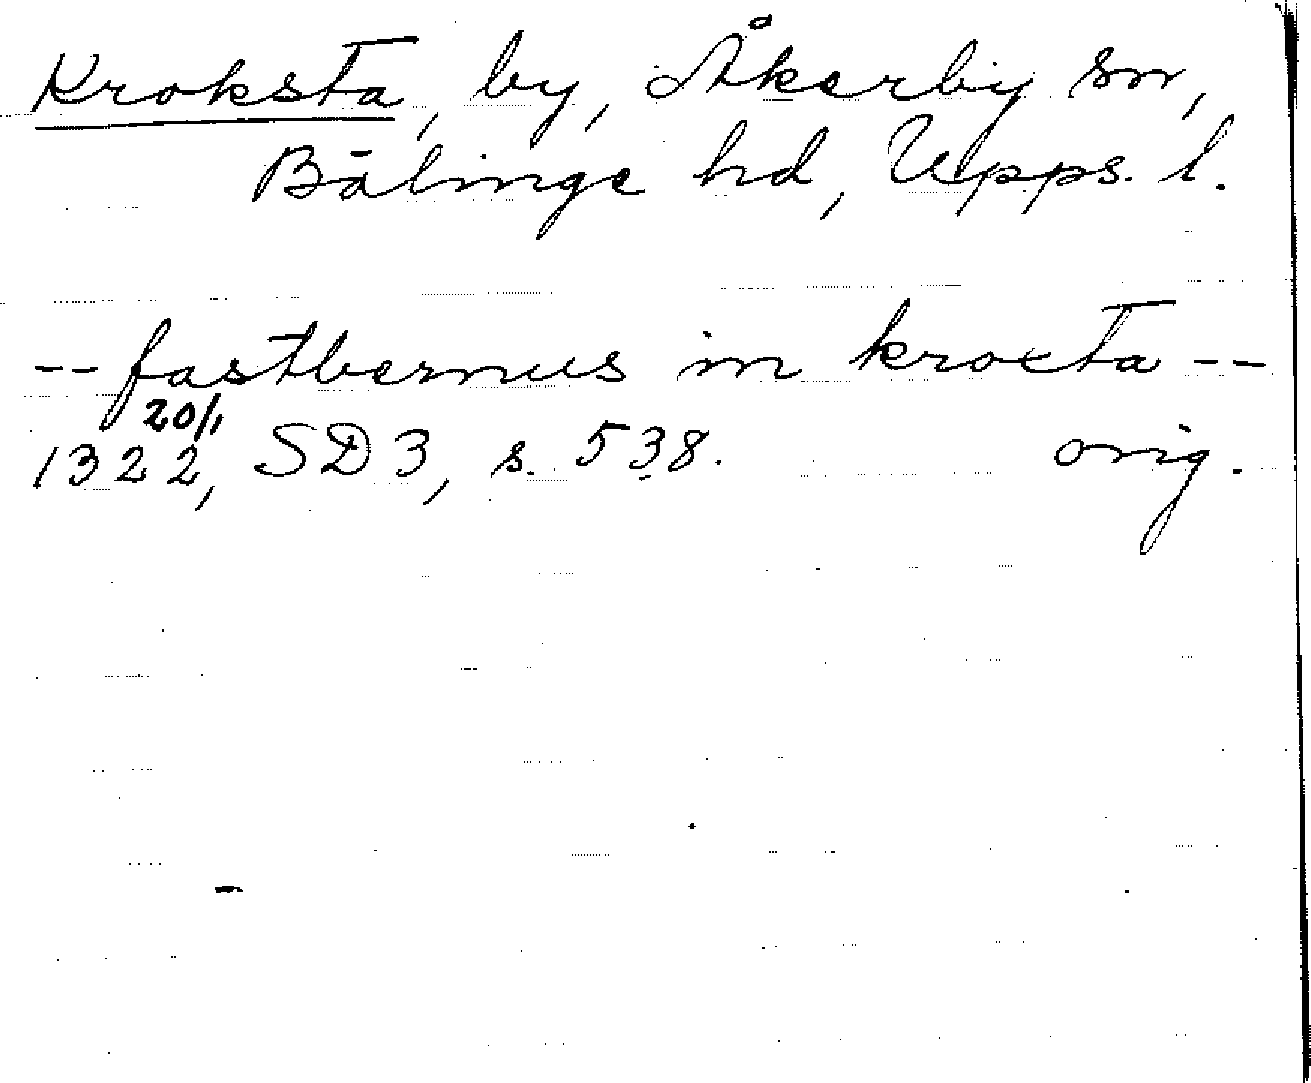 Kroksta, by, Åkerby sn,
Bälinge hd, Upps. l.
-- fastbernus in krocta --
20/1
1322, SD 3, s. 538. orig.